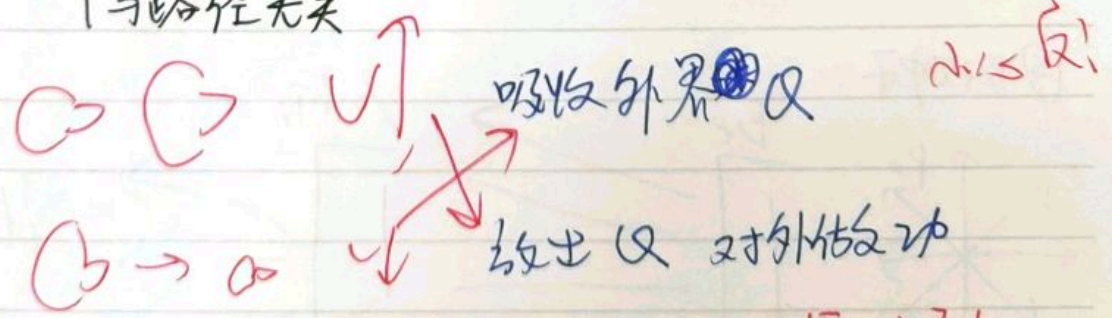 与路径无关
U↑ 吸收外界 Q 反!
→ U↓ 放出 Q 对外做功